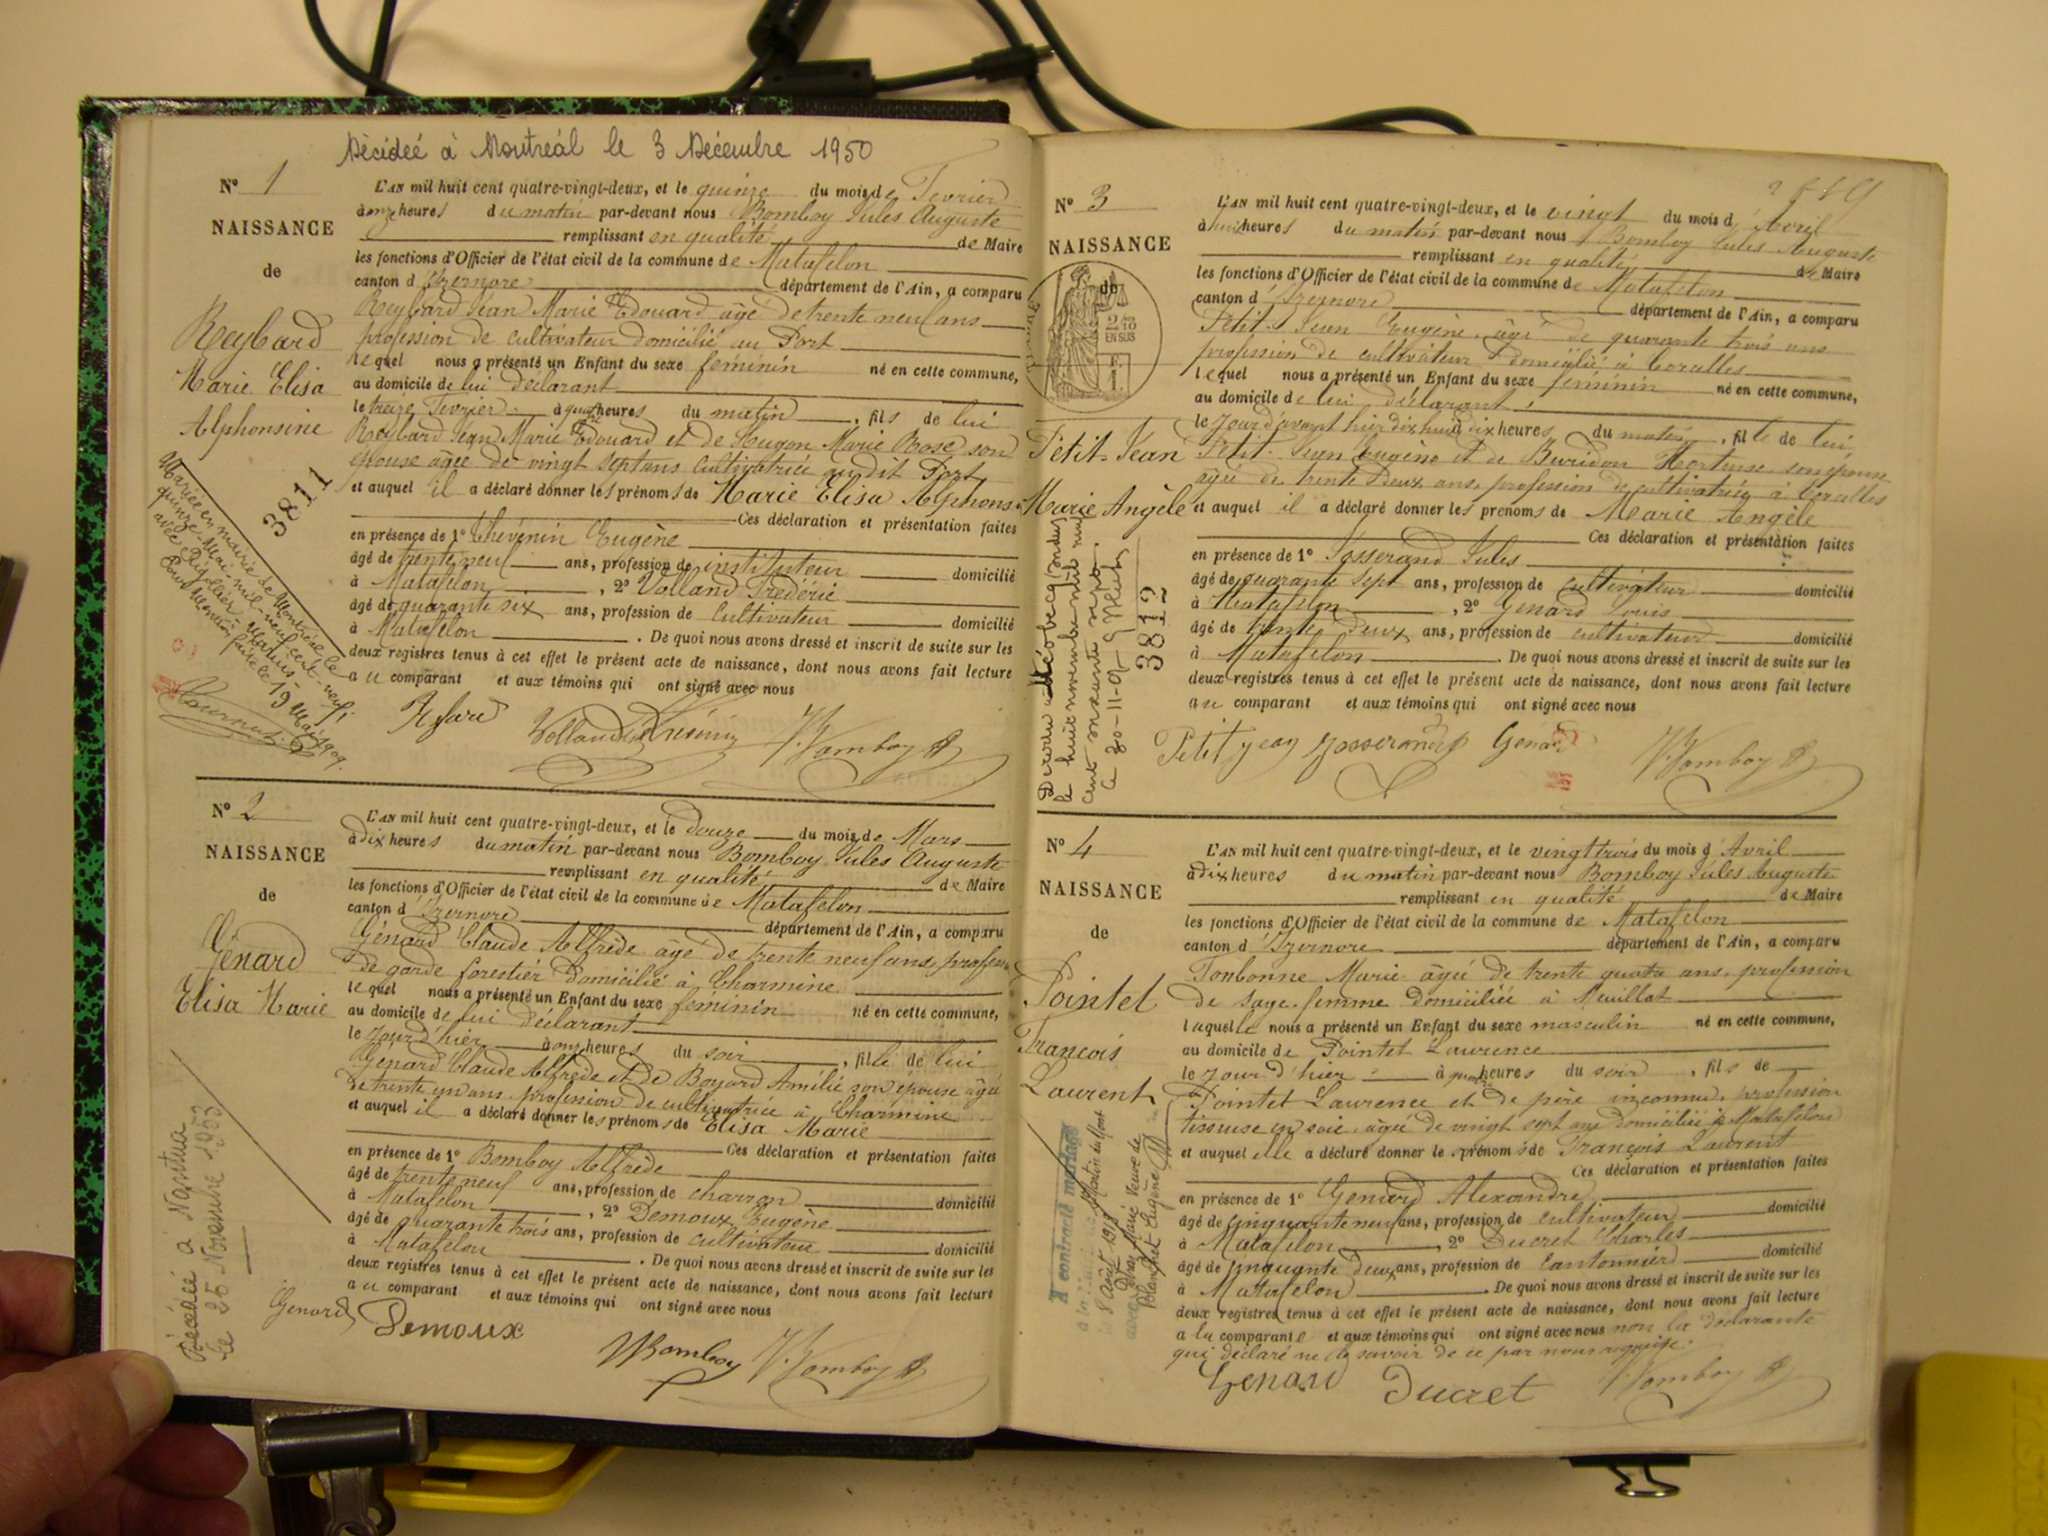 Décédée à Montréal le 3 Décembre 1950
N° 1
NAISSANCE
de
Reybard
Marie Elisa
Alphonsine
3811
Mariée en mairie de Montréal le
quinze Mai mil-neuf cent-neuf
avec Marius
Pour Mention faite le 19 Mai 1909.
L'AN mil huit cent quatre-vingt-deux, et le quinze du mois de Fevrier
à onze heures du matin par-devant nous Bomboy Jules Auguste
remplissant en qualité de Maire
les fonctions d'Officier de l'état civil de la commune de Matafelon
canton d'Izernore département de l'Ain, a comparu
Reybard Jéan Marie Edouard âgé de trente neuf ans
profession de cultivateur domicilié au Port
lequel nous a présenté un Enfant du sexe féminin né en cette commune,
au domicile de lui déclarant
le treize Fevrier à quatre heures du matin, fils de lui
Reybard Jéan Marie Edouard et de Hugon Marie Rose son
épouse âgée de vingt sept ans cultivatrice au dit Port
et auquel il a déclaré donner les prénoms de Marie Elisa Alphons
Ces déclaration et présentation faites
en présence de 1° Thévenin Eugène
âgé de trente neuf ans, profession de instituteur domicilié
à Matafelon, 2° Volland Frédéric
âgé de quarante six ans, profession de cultivateur domicilié
à Matafelon. De quoi nous avons dressé et inscrit de suite sur les
deux registres tenus à cet effet le présent acte de naissance, dont nous avons fait lecture
au comparant et aux témoins qui ont signé avec nous
Volland Thévenin J. Bomboy
N° 2
NAISSANCE
de
Génard
Elisa Marie
Décédée à Nantua
le 25 Novembre 1953
L'AN mil huit cent quatre-vingt-deux, et le douze du mois de Mars
à dix heures du matin par-devant nous Bomboy Jules Auguste
remplissant en qualité de Maire
les fonctions d'Officier de l'état civil de la commune de Matafelon
canton d'Izernore département de l'Ain, a comparu
Génard Claude Alfrède âgé de trente neuf ans, profession
de garde forestier domicilié à Charmine
lequel nous a présenté un Enfant du sexe féminin né en cette commune,
au domicile de lui déclarant
le jour d'hier à onze heures du soir, fille de lui
Génard Claude Alfrède et de Boyard Amélie son épouse âgée
de trente un ans profession de cultivatrice à Charmine
et auquel il a déclaré donner les prénoms de Elisa Marie
Ces déclaration et présentation faites
en présence de 1° Bomboy Alfrède
âgé de trente neuf ans, profession de charron domicilié
à Matafelon, 2° Demoux Eugène
âgé de quarante trois ans, profession de cultivateur domicilié
à Matafelon. De quoi nous avons dressé et inscrit de suite sur les
deux registres tenus à cet effet le présent acte de naissance, dont nous avons fait lecture
au comparant et aux témoins qui ont signé avec nous
Genard Demoux
Bomboy J. Bomboy
N° 3
NAISSANCE
de
2/10
EN SUS
Petit-Jéan
Marie Angèle
3812
L'AN mil huit cent quatre-vingt-deux, et le vingt du mois d'Avril
à huit heures du matin par-devant nous Bomboy Jules Auguste
remplissant en qualité de Maire
les fonctions d'Officier de l'état civil de la commune de Matafelon
canton d'Izernore département de l'Ain, a comparu
Petit-Jean Eugène, âgé de quarante trois ans
profession de cultivateur domicilié à Coralles
lequel nous a présenté un Enfant du sexe féminin né en cette commune,
au domicile de lui déclarant
le jour d'avant hier dix huit à dix heures du matin, fille de lui
Petit-Jean Eugène et de Buridon Hortense son épouse
âgée de trente deux ans, profession de cultivatrice à Coralles
et auquel il a déclaré donner les prénoms de Marie Angèle
Ces déclaration et présentation faites
en présence de 1° Josserand Jules
âgé de quarante sept ans, profession de cultivateur domicilié
à Matafelon, 2° Genard Louis
âgé de trente deux ans, profession de cultivateur domicilié
à Matafelon. De quoi nous avons dressé et inscrit de suite sur les
deux registres tenus à cet effet le présent acte de naissance, dont nous avons fait lecture
au comparant et aux témoins qui ont signé avec nous
Petit jean Josserand Genard J. Bomboy
N° 4
NAISSANCE
de
Pointet
François
Laurent
A contracté mariage
L'AN mil huit cent quatre-vingt-deux, et le vingt trois du mois d'Avril
à dix heures du matin par-devant nous Bomboy Jules Auguste
remplissant en qualité de Maire
les fonctions d'Officier de l'état civil de la commune de Matafelon
canton d'Izernore département de l'Ain, a comparu
Tonbonne Marie âgée de trente quatre ans, profession
de sage-femme domiciliée à Meuillat
laquelle nous a présenté un Enfant du sexe masculin né en cette commune,
au domicile de Pointet Laurence
le jour d'hier à quatre heures du soir, fils de
Pointet Laurence et de père inconnu, profession
tisseuse en soie, âgée de vingt sept ans domiciliée à Matafelon
et auquel elle a déclaré donner le prénoms de François Laurent
Ces déclaration et présentation faites
en présence de 1° Genard Alexandre
âgé de cinquante neuf ans, profession de cultivateur domicilié
à Matafelon, 2° Ducret Charles
âgé de cinquante deux ans, profession de cantonnier domicilié
à Matafelon. De quoi nous avons dressé et inscrit de suite sur les
deux registres tenus à cet effet le présent acte de naissance, dont nous avons fait lecture
a la comparante et aux témoins qui ont signé avec nous non la déclarante
qui déclaré ne le savoir de ce par nous requise.
Genard Ducret J. Bomboy